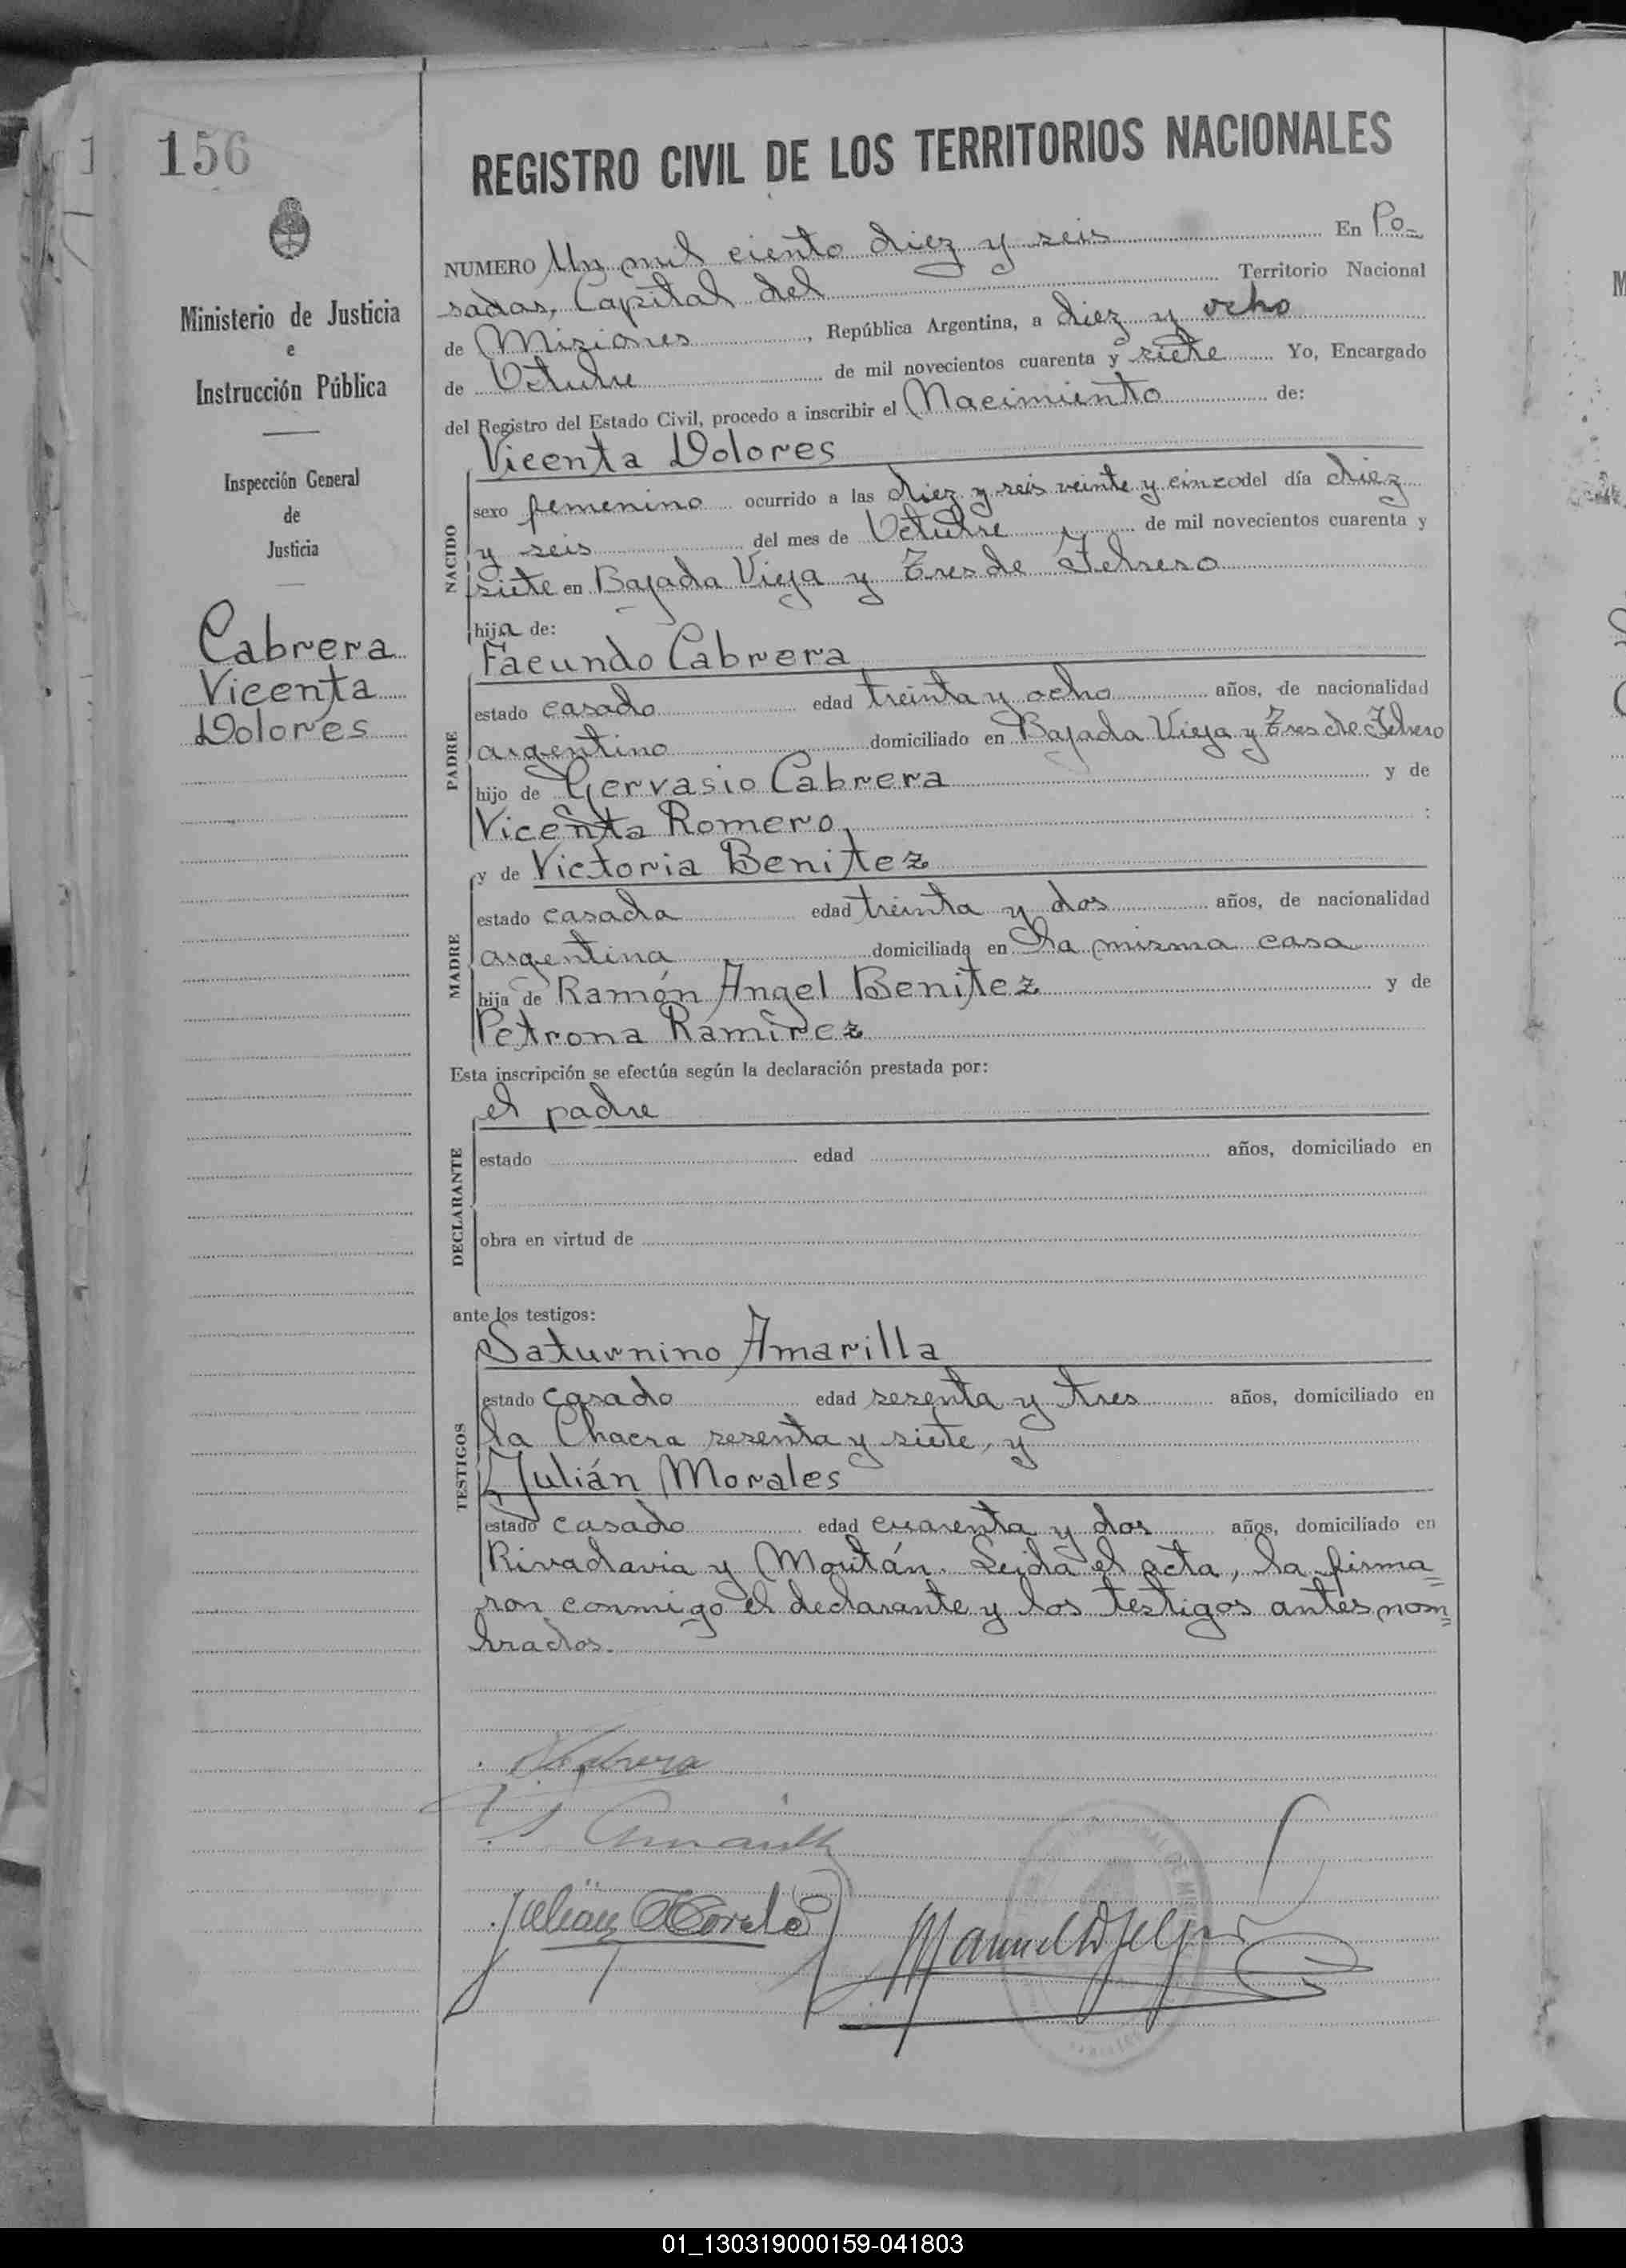 156
Ministerio de Justicia
e
Instrucción Pública
Inspección General
de
Justicia
Cabrera
Vicenta
Dolores
REGISTRO CIVIL DE LOS TERRITORIOS NACIONALES
NUMERO Un mil ciento diez y seis En Po=
sadas, Capital del Territorio Nacional
de Misiones, República Argentina, a diez y ocho
de Octubre de mil novecientos cuarenta y siete Yo, Encargado
del Registro del Estado Civil, procedo a inscribir el Nacimiento de:
Vicenta Dolores
NACIDO
sexo femenino ocurrido a las diez y seis veinte y cinco del día diez
y seis del mes de Octubre de mil novecientos cuarenta y
siete en Bajada Vieja y Tres de Febrero
hija de:
Facundo Cabrera
PADRE
estado casado edad treinta y ocho años, de nacionalidad
argentino domiciliado en Bajada Vieja y Tres de Febrero
hijo de Gervasio Cabrera y de
Vicenta Romero, :
y de Victoria Benitez
MADRE
estado casada edad treinta y dos años, de nacionalidad
argentina domiciliada en la misma casa
hija de Ramón Angel Benitez y de
Petrona Ramírez
Esta inscripción se efectúa según la declaración prestada por:
el padre
DECLARANTE
estado edad años, domiciliado en
obra en virtud de
ante los testigos:
Saturnino Amarilla
TESTIGOS
estado casado edad sesenta y tres años, domiciliado en
la Chacra sesenta y siete, y
Julián Morales
estado casado edad cuarenta y dos años, domiciliado en
Rivadavia y Moután. Leida el acta, la firma=
ron conmigo el declarante y los testigos antes nom=
brados.
Cabrera
S Amarilla
Julián Morales
01_130319000159-041803